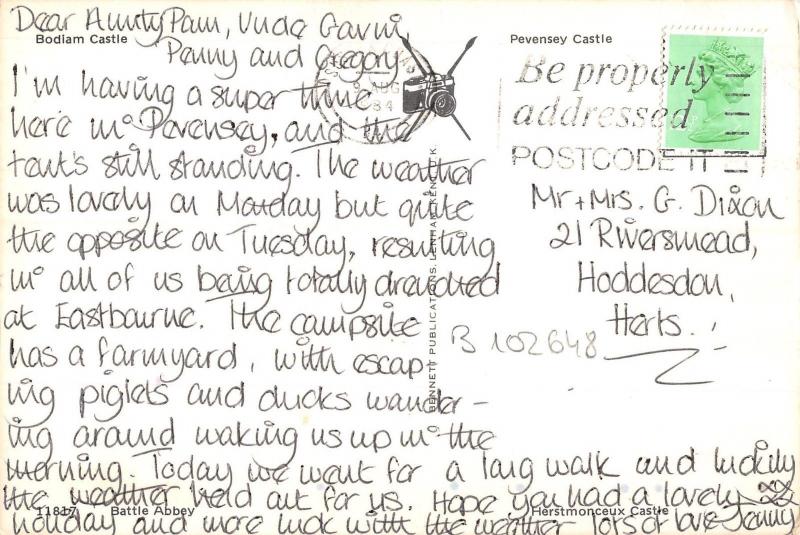 Dear Aunty Pam, Uncle Gavin,
Bodiam Castle
Penny and Gregory,
I'm having a super time
here in Pevensey, and the
tent's still standing. The weather
was lovely on Monday but quite
the opposite on Tuesday, resulting
in all of us being totally drenched
at Eastbourne. The campsite
has a farmyard, with escap
ing piglets and ducks wander-
ing around waking us up in the
morning. Today we went for a long walk and luckily
the weather held out for us. Hope you had a lovely
11817 Battle Abbey
Herstmonceux Castle
holiday and more luck with the weather lots of love Jenny
Pevensey Castle
9 AUG
84
Be properly
addressed
POSTCODE IT
Mr + Mrs. G. Dixon
21 Riversmead,
Hoddesdon,
Herts.
B 102648
© BENNETT PUBLICATIONS, LENHAM, KENT